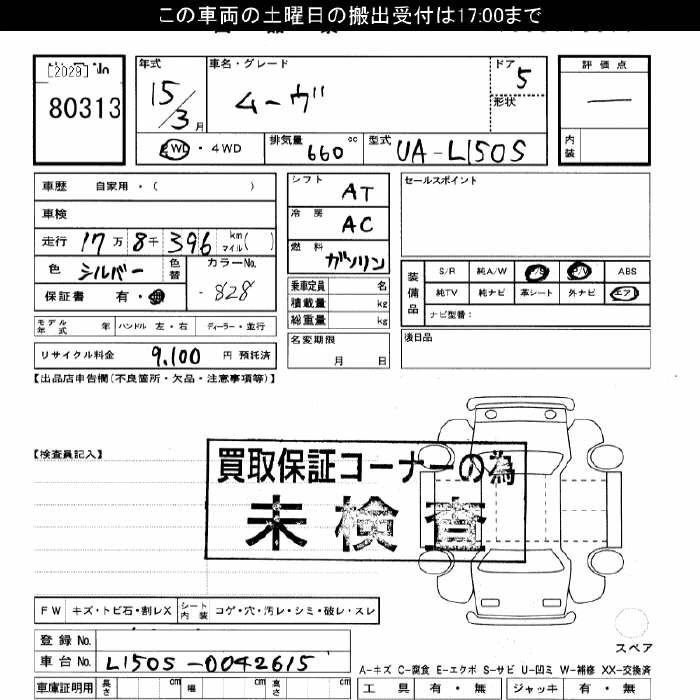 この車両の土曜日の搬出受付は17:00まで
[2029]
80313
年式
15/3月
車名・グレード
ムーヴ
ドア
5
形状
評価点
―
内装
2WD・4WD
排気量
660 cc
型式
UA-L150S
車歴 自家用・( )
車検
走行 17万 8千 396 km マイル( )
色 シルバー 色替
カラーNo.
-828
保証書 有・無
モデル年式 年 ハンドル 左・右 ディーラー・並行
リサイクル料金 9,100 円 預託済
シフト AT
冷房 AC
燃料 ガソリン
乗車定員 名
積載量 kg
総重量 kg
名変期限
月 日
セールスポイント
装備品
S/R 純A/W P/S P/W ABS
純TV 純ナビ 革シート 外ナビ エア
ナビ型番:
後日品
【出品店申告欄(不良箇所・欠品・注意事項等)】
【検査員記入】
買取保証コーナーの為
未検査
FW キズ・トビ石・割レX シート内装 コゲ・穴・汚レ・シミ・破レ・スレ
スペア
登録No.
車台No. L150S-0042615
A-キズ C-腐食 E-エクボ S-サビ U-凹ミ W-補修 XX-交換済
車庫証明用 長さ cm 幅 cm 高さ cm
工具 有・無 ジャッキ 有・無